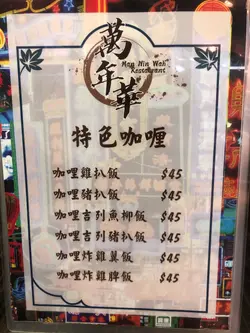 萬年華
Man Nin Wah
Restaurant
特色咖喱
咖哩雞扒飯 $45
咖哩豬扒飯 $45
咖哩吉列魚柳飯 $45
咖哩吉列豬扒飯 $45
咖哩炸雞翼飯 $45
咖哩炸雞脾飯 $45